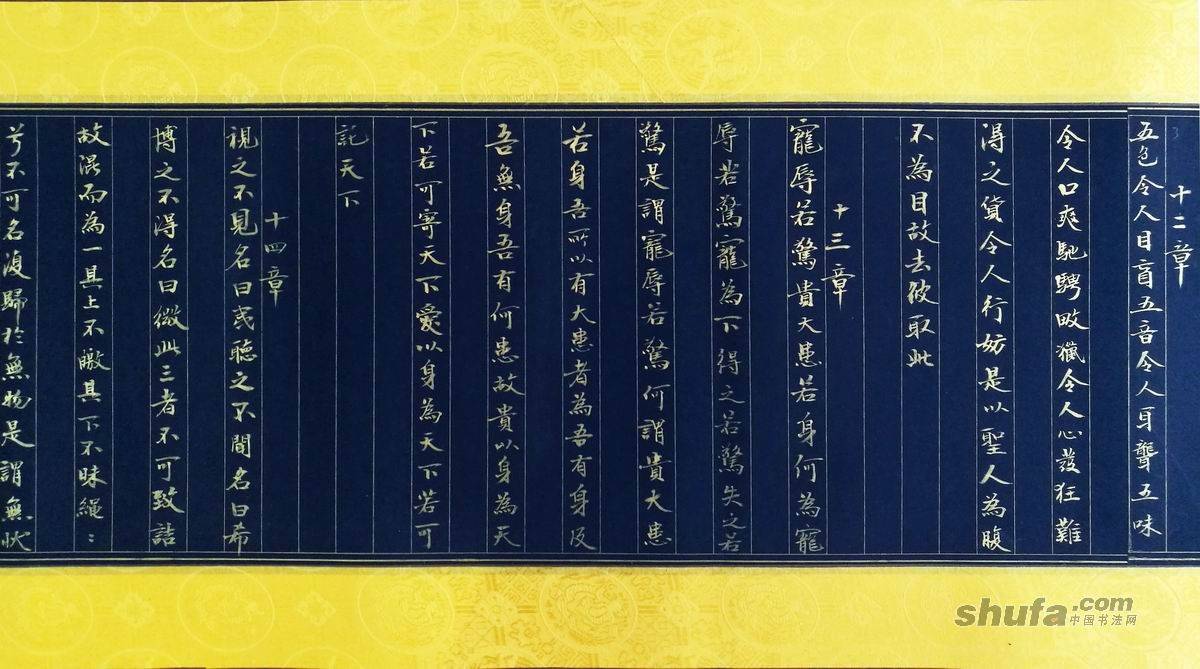 十二章
五色令人目盲五音令人耳聾五味
令人口爽馳騁畋獵令人心發狂難
得之貨令人行妨是以聖人為腹
不為目故去彼取此
十三章
寵辱若驚貴大患若身何為寵
辱若驚寵為下得之若驚失之若
驚是謂寵辱若驚何謂貴大患
若身吾所以有大患者為吾有身及
吾無身吾有何患故貴以身為天
下若可寄天下愛以身為天下若可
託天下
十四章
視之不見名曰夷聽之不聞名曰希
博之不得名曰微此三者不可致詰
故混而為一其上不皦其下不昧繩:
兮不可名復歸於無物是謂無狀
shufa.com
中国书法网